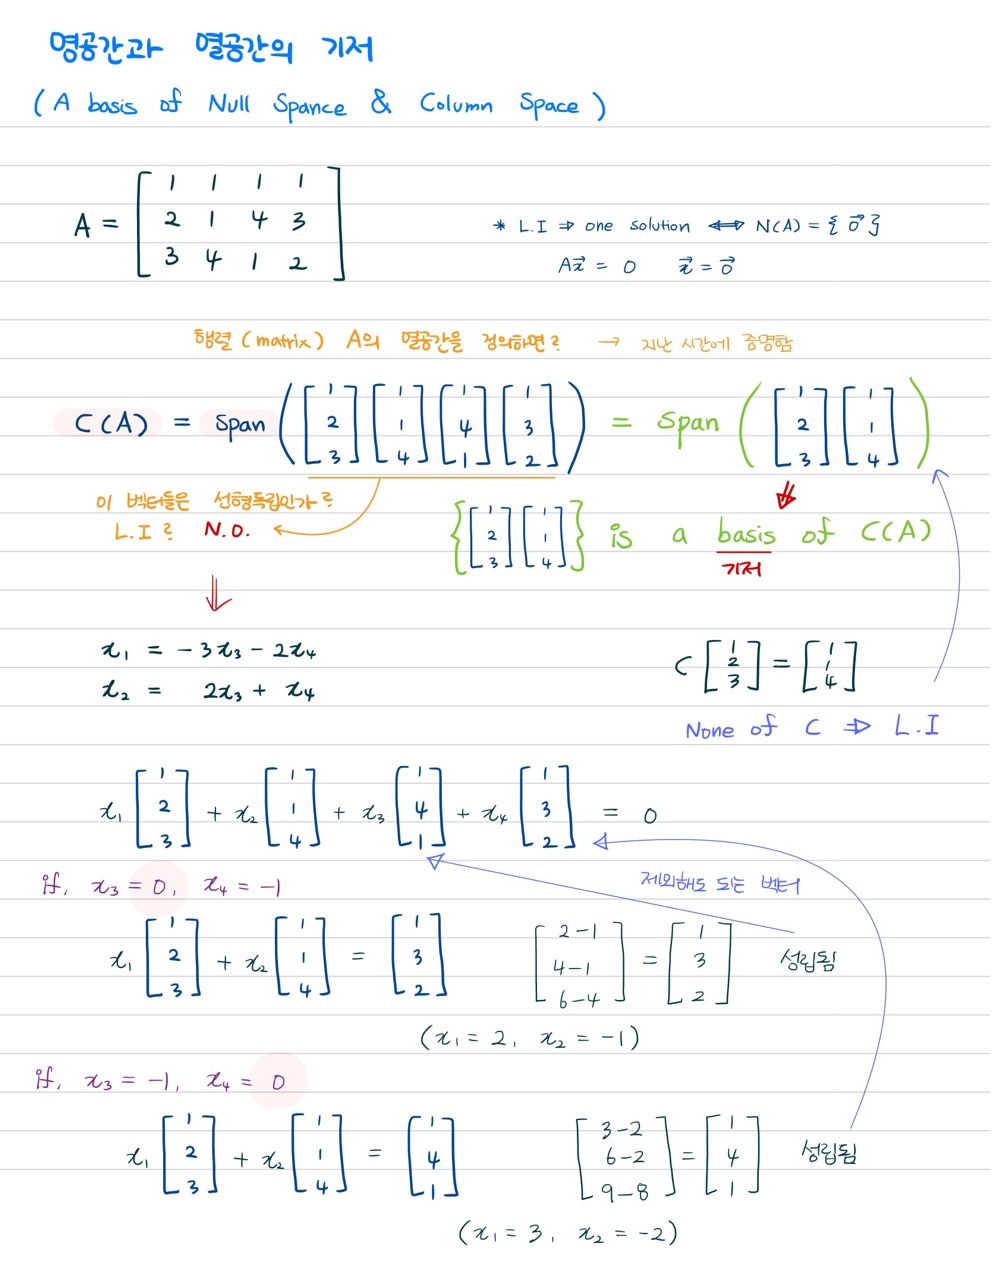 영공간과 열공간의 기저
( A basis of Null Spance & Column Space )
A = [ 1 1 1 1
2 1 4 3
3 4 1 2 ]
* L.I ⇒ one solution ⟺ N(A) = { 0⃗ }
Ax⃗ = 0 x⃗ = 0⃗
행렬 (matrix) A의 열공간을 정의하면? → 지난 시간에 증명함
C(A) = span ( [1 2 3] [1 1 4] [1 4 1] [1 3 2] ) = span ( [1 2 3] [1 1 4] )
이 벡터들은 선형독립인가?
L.I ? N.O.
{ [1 2 3] [1 1 4] } is a basis of C(A)
기저
x₁ = -3x₃ - 2x₄
x₂ = 2x₃ + x₄
C [1 2 3] = [1 1 4]
None of C ⇒ L.I
x₁ [1 2 3] + x₂ [1 1 4] + x₃ [1 4 1] + x₄ [1 3 2] = 0
if, x₃ = 0, x₄ = -1
제외해도 되는 벡터
x₁ [1 2 3] + x₂ [1 1 4] = [1 3 2]
[2-1 4-1 6-4] = [1 3 2] 성립됨
(x₁ = 2, x₂ = -1)
if, x₃ = -1, x₄ = 0
x₁ [1 2 3] + x₂ [1 1 4] = [1 4 1]
[3-2 6-2 9-8] = [1 4 1] 성립됨
(x₁ = 3, x₂ = -2)